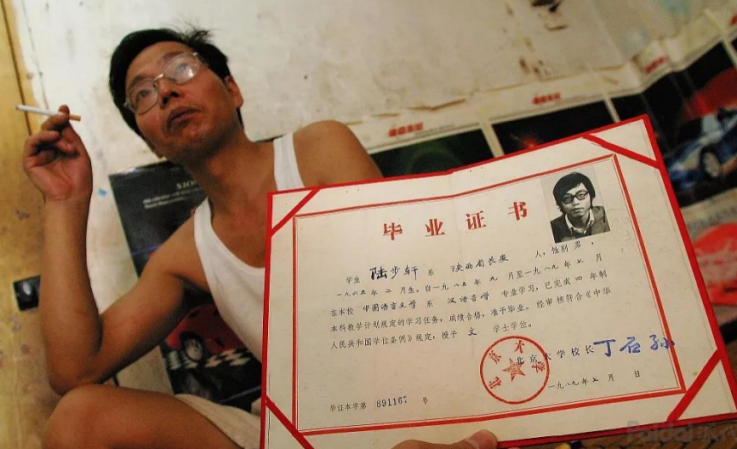 毕业证书
学生 陆步轩 系 陕西省长安 人，性别 男，
一九六五年 二 月生，自一九八五年 九 月至一九八九年 七 月
在本校 中国语言文学 系 汉语言学 专业学习，已完成 四 年制
本科教学计划规定的学习任务，成绩合格，准予毕业。经审核符合《中华
人民共和国学位条例》规定，授予 文 学士学位。
北京大学校长 丁石孙
北京大学
一九八九年七月 日
毕证本字第 89116 号